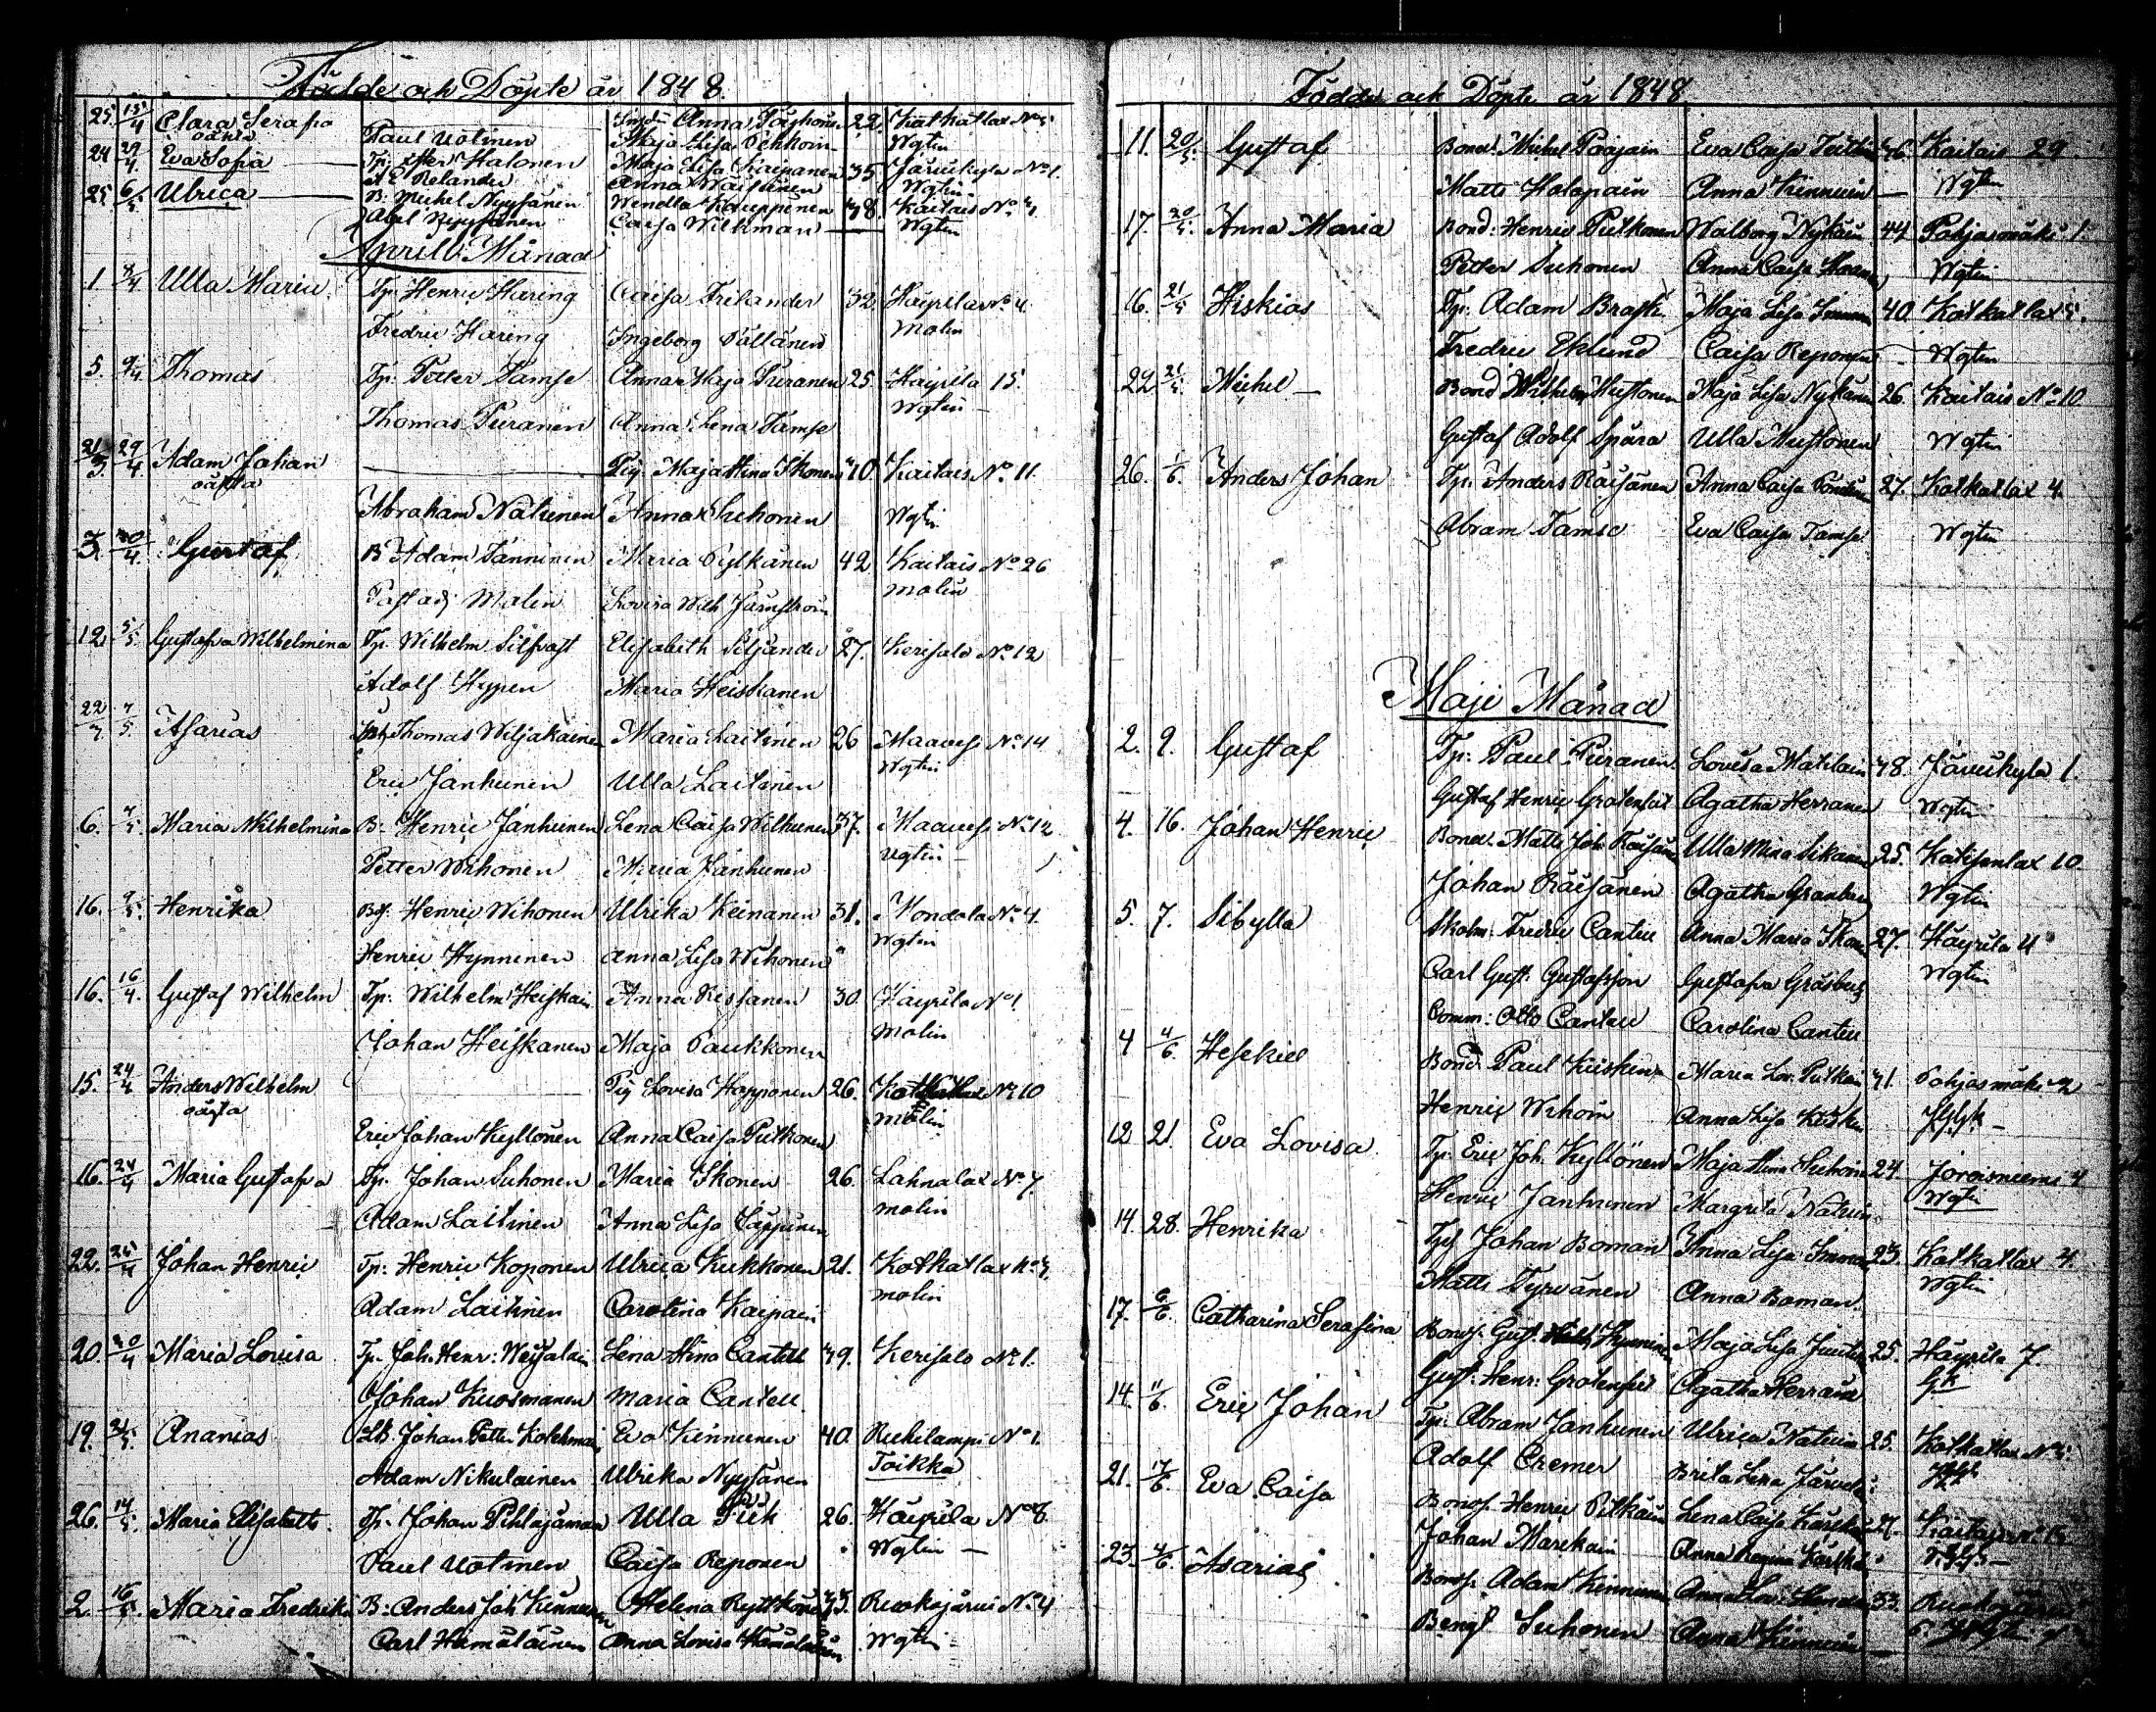 Födde och Döpte år 1848.
25. 15/4 Clara Serafia Inhys Anna 22. Katkatlax No 5
oäkta Paul Uotinen Maja Lisa Wgtin
24 29/4 Eva Sofia Tp: Petter Halonen Maja Lisa Kaipanen 35 Järvikylä No 1.
A E Relander Anna Wgtin
25. 6/5 Ulrica B. Michel Nyyssänen Wendla Kauppinen 38. Kaitais No 7.
Abel Nyyssänen Caisa Wilkman Wgtin
Aprill Månad
1. 8/4 Ulla Maria Tp: Henric Haring Caisa Frilander 32. Häyrilä No 4.
Fredric Haring Ingeborg Pöllänen Molin
5. 9/4 Thomas Tp: Petter Tamse Anna Maja Puranen 25. Häyrilä 15.
Thomas Puranen Anna Lena Tamse Wgtin
21/3. 29/4. Adam Johan Pig. Maja Stina Ikonen 40. Kaitais No 11.
oäkta Abraham Natunen Anna Suhonen Wgtin
3. 30/4. Gustaf B Adam Tanninen Maria Pylkänen 42 Kaitais No 26
Past adj Malin Lovisa Wilh Järnström Molin
12. 5/5. Gustafva Wilhelmina Tp. Wilhelm Silfvast Elisabeth Siljander 27. Kerisalo No 12
Adolf Hyppen Maria Heiskanen
22/7. 7/5. Asarias Thomas Wiljakainen Maria Laitinen 26 Maavesi No 14
Eric Janhunen Ulla Laitinen Wgtin
6. 7/5. Maria Wilhelmina B. Henric Janhunen Lena Caisa Wilhunen 37. Maavesi No 12
Petter Wihonen Maria Janhunen Wgtin
16. 9/5. Henrika Bg: Henric Wihonen Ulrika Keinanen 31. Mondola No 4.
Henric Hynninen Anna Lisa Wihonen Wgtin
16. 16/4. Gustaf Wilhelm Tp: Wilhelm Heiskain Anna Kessanen 30. Häyrilä No 1
Johan Heiskanen Maja Paukkonen Molin
15. 24/4 Anders Wilhelm Pig Lovisa Happonen 26. No 10
oägta Eric Johan Kyllönen Anna Caisa Putkonen Molin
16. 24/4 Maria Gustafva Tp. Johan Suhonen Maria Ikonen 26. Lahnalax No 7.
Adam Laitinen Anna Lisa Tappinen Molin
22. 25/4 Johan Henric Tp: Henric Koponen Ulrica Kukkonen 21. Kotkatlax No 7.
Adam Laitinen Carolina Kaipain Molin
20. 30/4 Maria Lovisa Tp. Joh. Henr: Weisalain Lena Stina Cantell 39. Kerisalo No 1.
Johan Kuosmanen Maria Cantell
19. Ananias Johan Petter Kolehmai Eva Kinnunen 40. Ruhilampi No 1.
Adam Nikulainen Ulrika Nyyssänen Toikka
26. 14/5. Maria Elisabeth. Tp. Johan Pihlajaman Ulla Piik 26. Häyrilä No 8
Paul Uotinen Caisa Reponen Wgtin
2. 16/5. Maria Fredrika B: Anders Joh Kinnunen Helena Ryttkönen 33. Ruokojärvi No 4
Carl Hämäläinen Anna Lovisa Hämäläinen Wgtin
Födde och Döpte år 1848
11. 20/5. Gustaf Bond. Michel Paajain Eva Caisa 36. Kaitais 29
Matts Halapain Anna Kinnuin Wgtin
17. 20/5. Anna Maria Bond: Henric Putkonen Walborg Nykäin 44 Pohjasmäki 1.
Petter Suhonen Anna Caisa Wgtin
16. 21/5 Hiskias Tp. Adam Brask Maja Lisa 40. Kotkatlax 5.
Fredric Eklund Caisa Reponen Wgtin
22. 21/5. Michel Bond Wilhelm Mustonen Maja Lisa Nykänen 26. Kaitais No 10
Gustaf Adolf Spåra Ulla Mustonen Wgtin
26. 1/6. Anders Johan Tp. Anders Räisänen Anna Caisa 27. Kotkatlax 4.
Abram Tamse Eva Caisa Tamse Wgtin
Maji Månad
2. 9. Gustaf Tp: Paul Puranen Lovisa Matilain 38. Järvikylä 1.
Gustaf Henric Grotenfelt Agatha Herranen Wgtin
4. 16. Johan Henric Bond. Matts Joh. Räisänen Ulla Mina Sikanen 25. Katisenlax 10.
Johan Räisänen Agatha Granberg Wgtin
5. 7. Sibylla Skolm: Fredric Cantell Anna Maria 27. Häyrilä 4
Carl Gust. Gustafsson Gustafva Gråsberg Wgtin
Comm: Otto Cantell Carolina Cantell
4 4/6. Hesekiel Bond Paul Kiiskinen Maria Lov. Putkoin 41. Pohjasmäki 2
Henric Wihoin Anna Lisa
12 21. Eva Lovisa Tp. Eric Joh. Kyllönen Maja Stina Suhoin 24. Joroisniemi 4
Henric Janhunen Margreta Natuin Wgtin
14. 28. Henrika Johan Boman Anna Lisa 23. Kotkatlax 4.
Matts Tyrvänen Anna Boman. Wgtin
17. 6/6. Catharina Serafina Gust. Hynninen Maja Lisa 25. Häyrilä 7.
Gust: Henr: Grotenfelt Agatha Herrain
14. 11/6. Eric Johan Tp. Abram Janhunen Ulrica Natuin 25. Kotkatlax No 5
Adolf Cremer Brita Lena
21. 17/6. Eva Caisa Henric Pitkäin Lena Caisa
Johan Marikain Anna Regina
23. Asarias Adam Kinnunen Anna Lov. 33.
Bengt Suhonen Anna Kinnuin